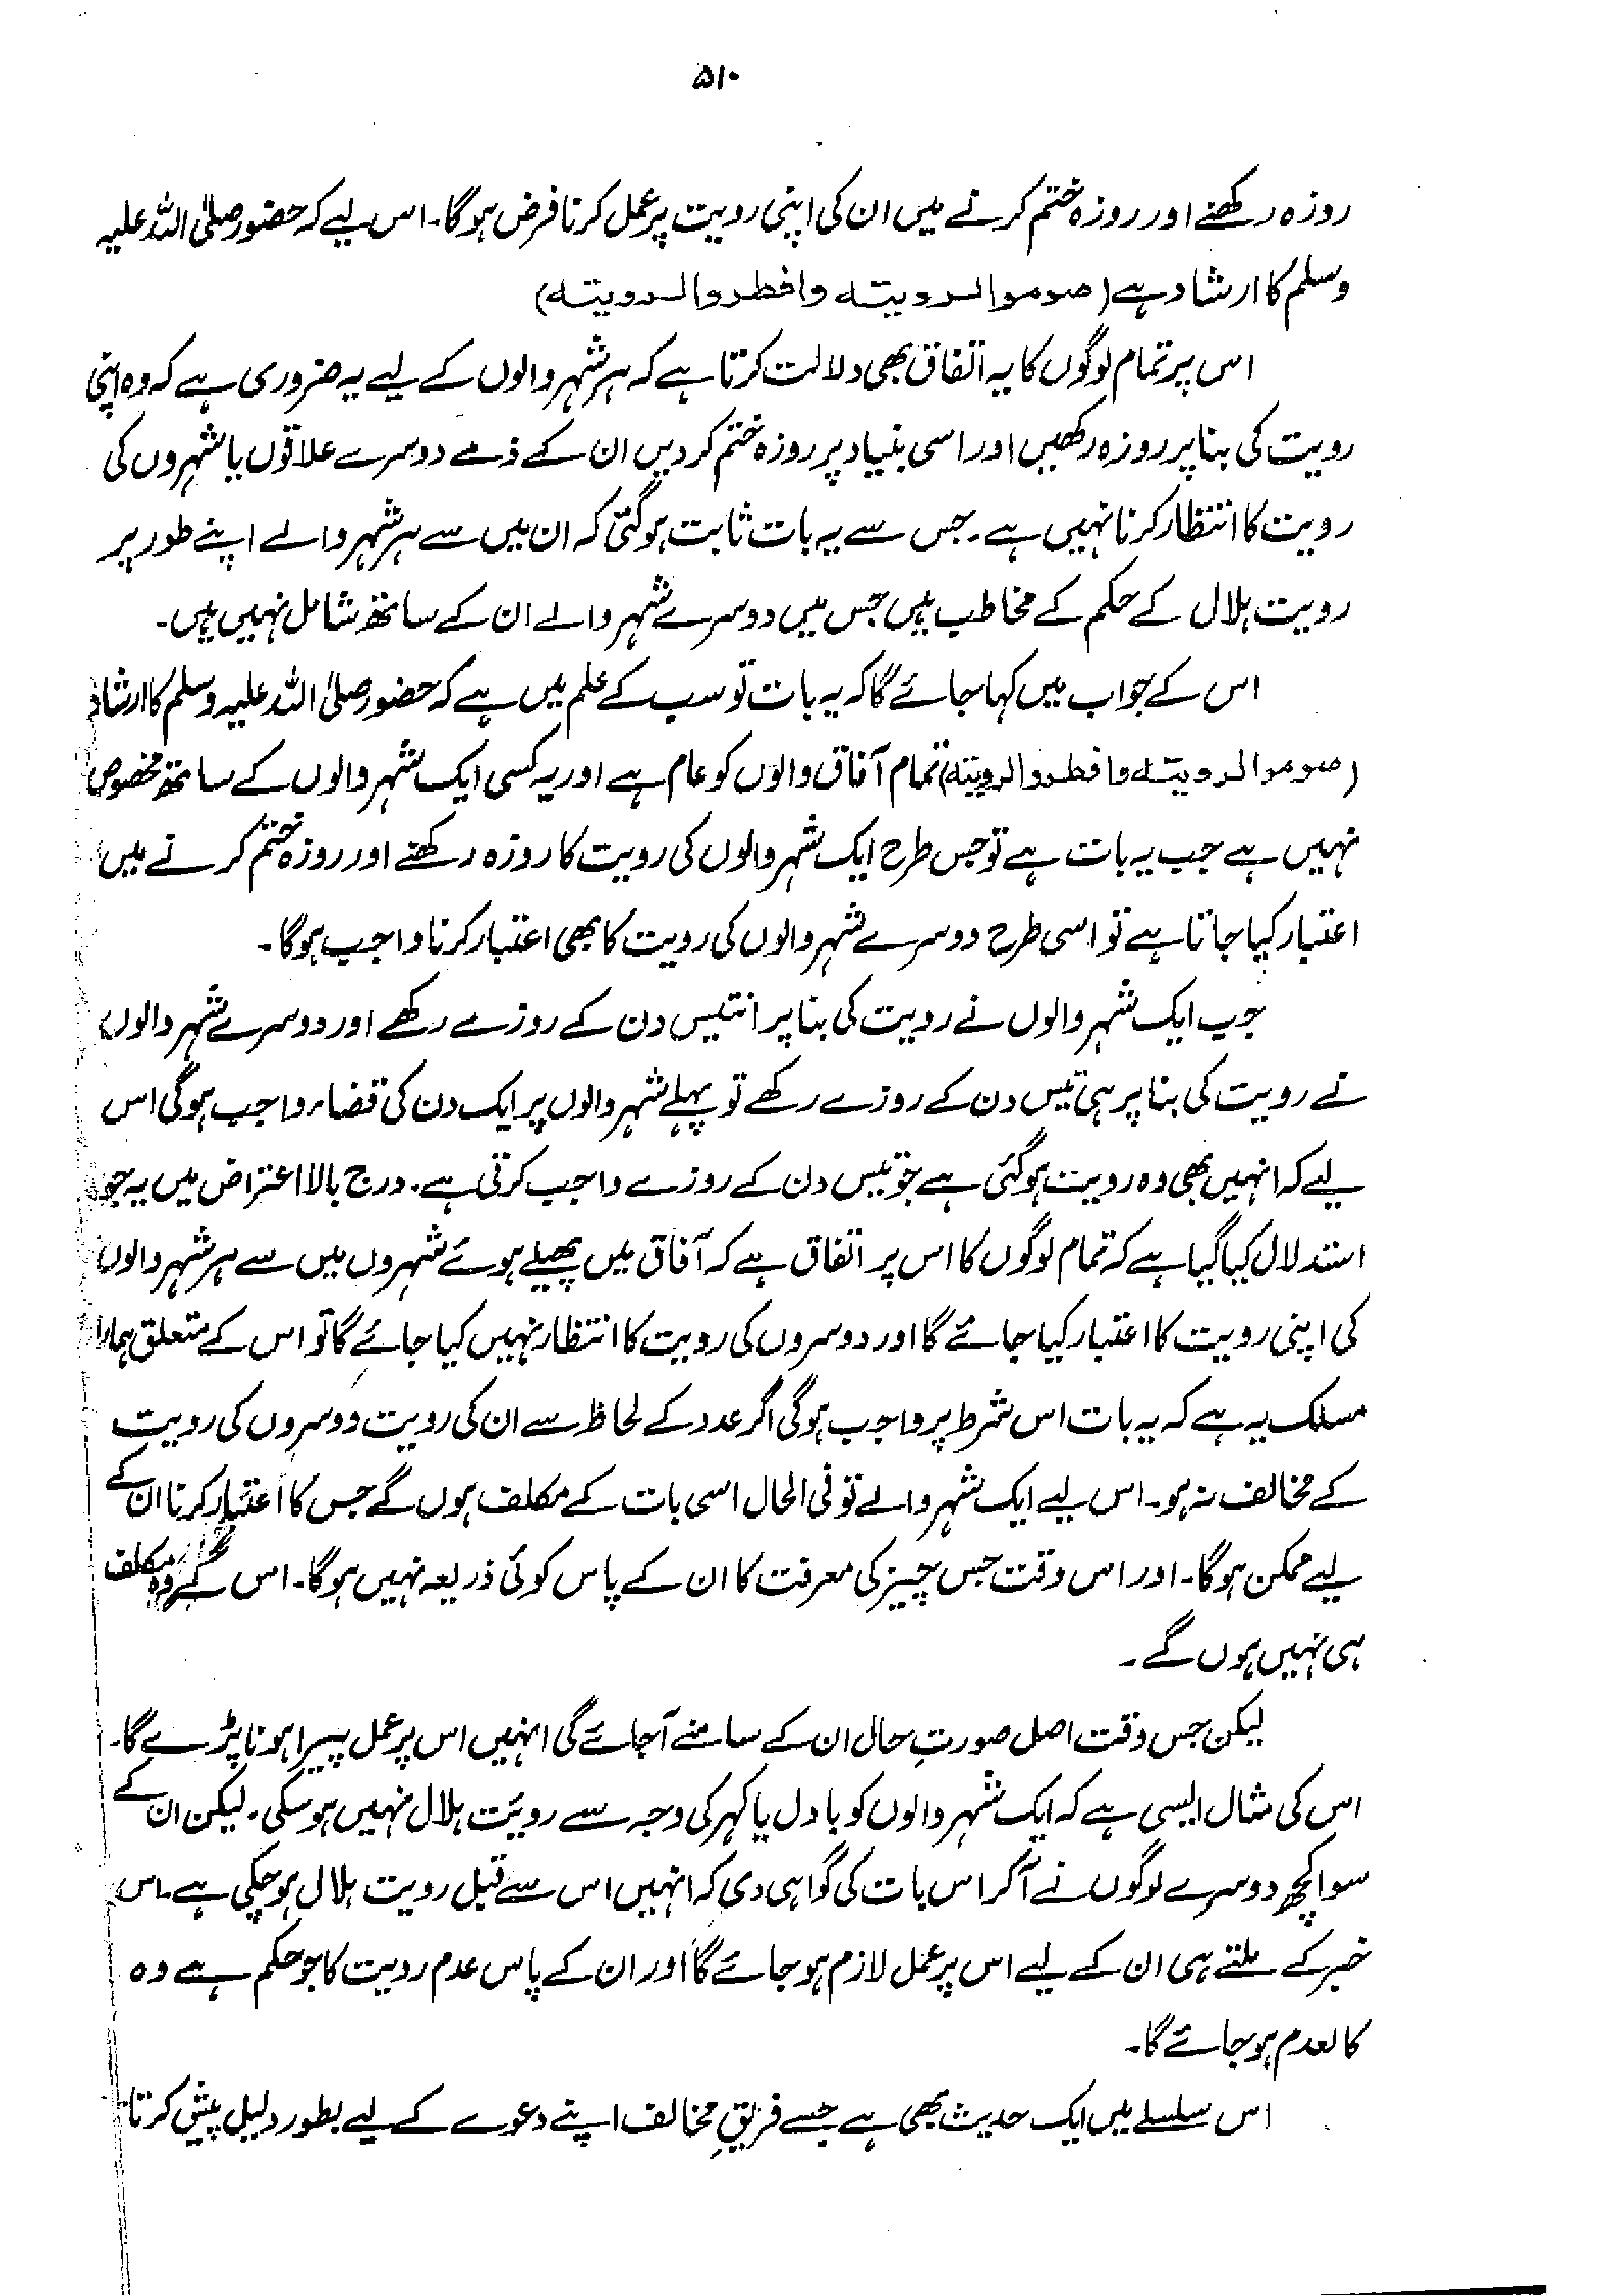 ۵۱۰
روزہ رکھنے اور روزہ ختم کرنے میں ان کی اپنی رویت پر عمل کرنا فرض ہوگا۔ اس لیے کہ حضور صلی اللہ علیہ
وسلم کا ارشاد ہے (صوموا لرویتہ وافطروا لرویتہ)
اس پر تمام لوگوں کا یہ اتفاق بھی دلالت کرتا ہے کہ ہر شہر والوں کے لیے یہ ضروری ہے کہ وہ اپنی
رویت کی بنا پر روزہ رکھیں اور اسی بنیاد پر روزہ ختم کر دیں ان کے ذمے دوسرے علاقوں یا شہروں کی
رویت کا انتظار کرنا نہیں ہے۔ جس سے یہ بات ثابت ہوگئی کہ ان میں سے ہر شہر والے اپنے طور پر
رویت ہلال کے حکم کے مخاطب ہیں جس میں دوسرے شہر والے ان کے ساتھ شامل نہیں ہیں۔
اس کے جواب میں کہا جائے گا کہ یہ بات تو سب کے علم میں ہے کہ حضور صلی اللہ علیہ وسلم کا ارشاد
(صوموا لرویتہ وافطروا لرویتہ) تمام آفاق والوں کو عام ہے اور یہ کسی ایک شہر والوں کے ساتھ مخصوص
نہیں ہے جب یہ بات ہے تو جس طرح ایک شہر والوں کی رویت کا روزہ رکھنے اور روزہ ختم کرنے میں
اعتبار کیا جاتا ہے تو اسی طرح دوسرے شہر والوں کی رویت کا بھی اعتبار کرنا واجب ہوگا۔
جب ایک شہر والوں نے رویت کی بنا پر انتیس دن کے روزے رکھے اور دوسرے شہر والوں
نے رویت کی بنا پر ہی تیس دن کے روزے رکھے تو پہلے شہر والوں پر ایک دن کی قضاء واجب ہوگی اس
لیے کہ انہیں بھی وہ رویت ہوگئی ہے جو تیس دن کے روزے واجب کرتی ہے۔ درج بالا اعتراض میں یہ جو
استدلال کیا گیا ہے کہ تمام لوگوں کا اس پر اتفاق ہے کہ آفاق میں پھیلے ہوئے شہروں میں سے ہر شہر والوں
کی اپنی رویت کا اعتبار کیا جائے گا اور دوسروں کی رویت کا انتظار نہیں کیا جائے گا تو اس کے متعلق ہمارا
مسلک یہ ہے کہ یہ بات اس شرط پر واجب ہوگی اگر عدد کے لحاظ سے ان کی رویت دوسروں کی رویت
کے مخالف نہ ہو۔ اس لیے ایک شہر والے تو فی الحال اسی بات کے مکلف ہوں گے جس کا اعتبار کرنا ان کے
لیے ممکن ہوگا۔ اور اس وقت جس چیز کی معرفت کا ان کے پاس کوئی ذریعہ نہیں ہوگا۔ اس کے وہ مکلف
ہی نہیں ہوں گے۔
لیکن جس وقت اصل صورتِ حال ان کے سامنے آجائے گی انہیں اس پر عمل پیرا ہونا پڑے گا۔
اس کی مثال ایسی ہے کہ ایک شہر والوں کو بادل یا کہر کی وجہ سے رویت ہلال نہیں ہو سکی۔ لیکن ان کے
سوا کچھ دوسرے لوگوں نے آکر اس بات کی گواہی دی کہ انہیں اس سے قبل رویت ہلال ہو چکی ہے۔ اس
خبر کے ملتے ہی ان کے لیے اس پر عمل لازم ہو جائے گا اور ان کے پاس عدم رویت کا جو حکم ہے وہ
کالعدم ہو جائے گا۔
اس سلسلے میں ایک حدیث بھی ہے جسے فریقِ مخالف اپنے دعوے کے لیے بطور دلیل پیش کرتا